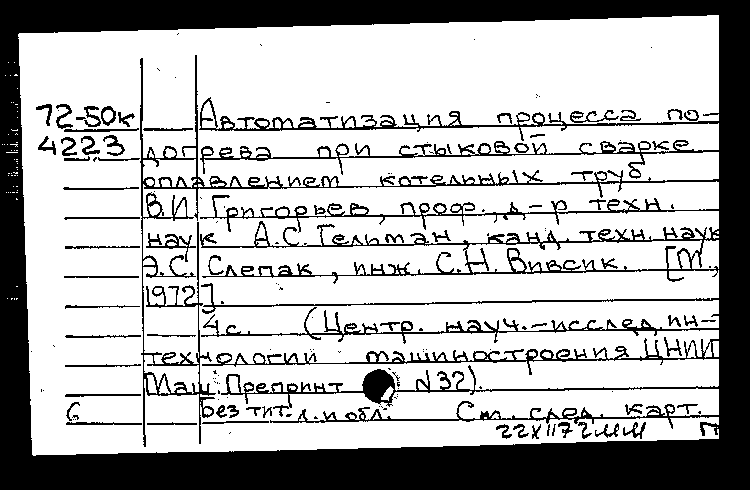 72-50к Автоматизация процесса по-
4223 догрева при стыковой сварке
оплавлением котельных труб.
В.И. Григорьев, проф., д-р техн.
наук А.С. Гельман, канд. техн. наук
Э.С. Слепак, инж. С.Н. Вивсик. [М.,
1972].
4с. (Центр. науч.-исслед. ин-т
технологии машиностроения ЦНИИТ
Маш. Препринт №32).
6 Без тит. л. и обл. См. след. карт.
22XII72 мм П